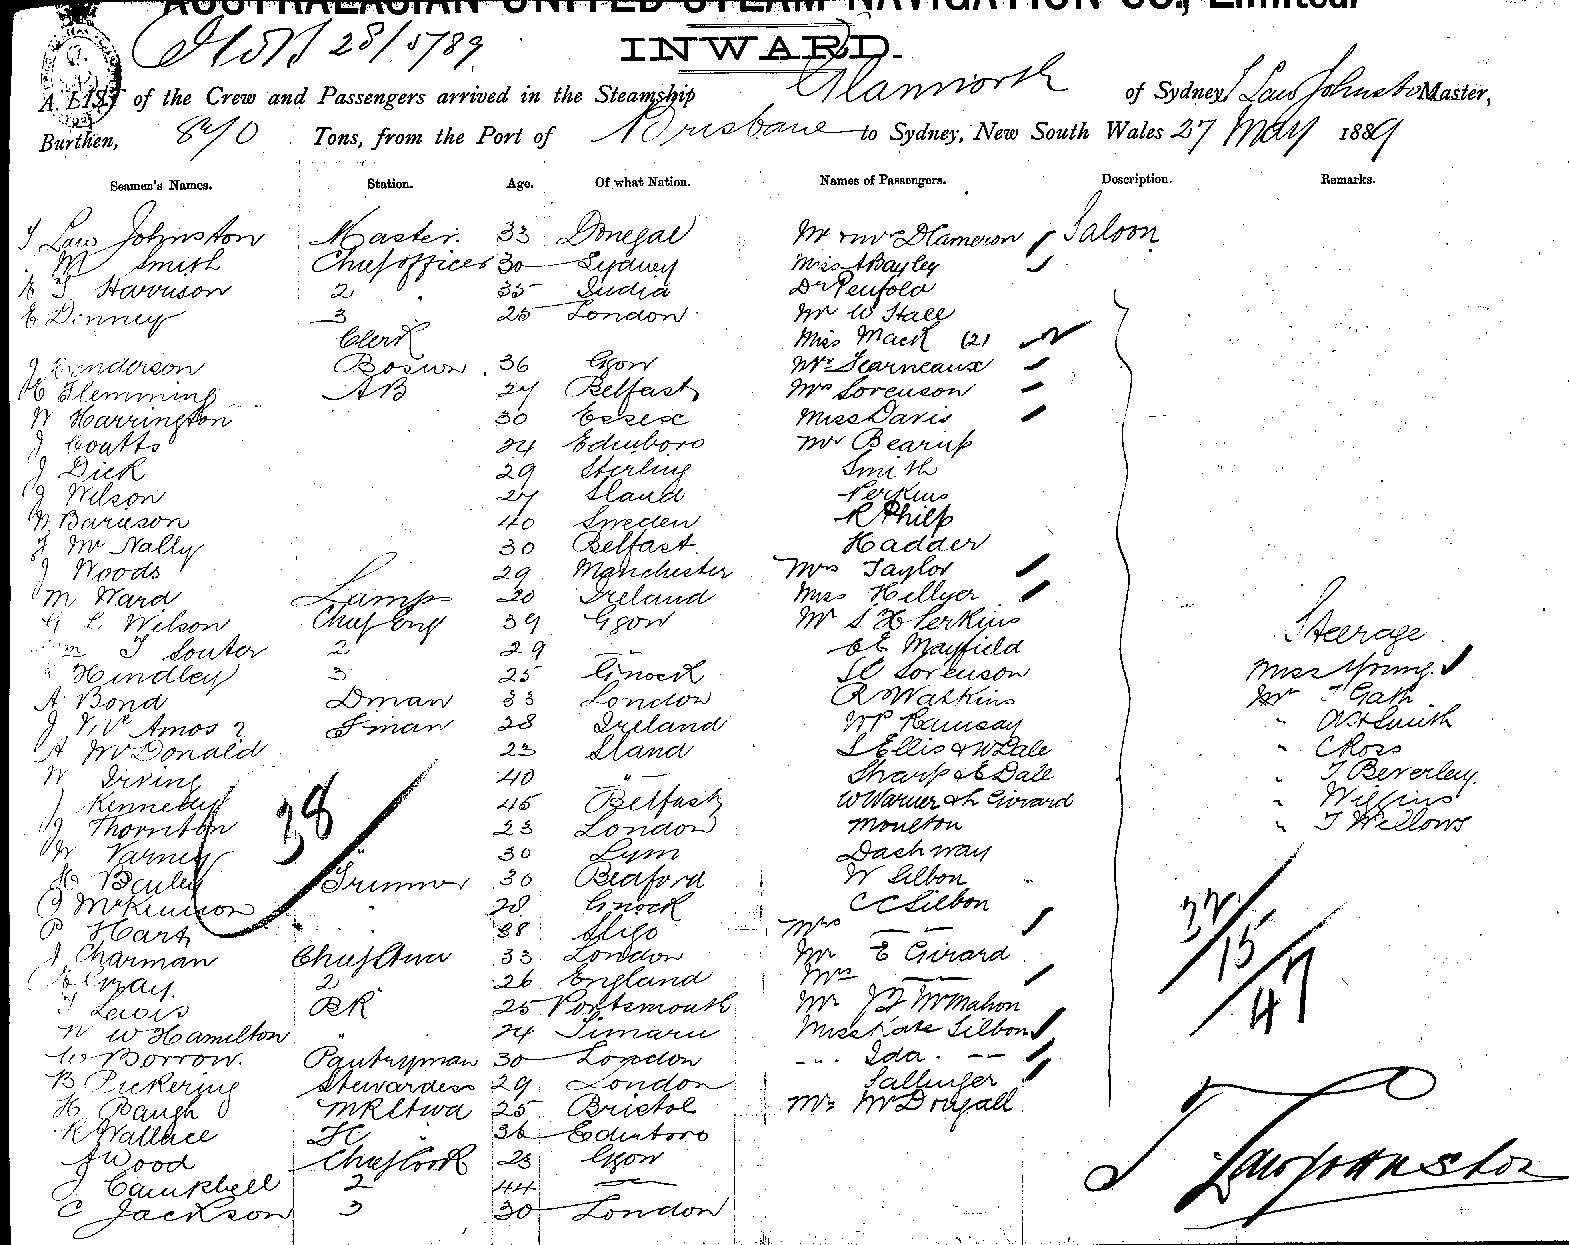 AUSTRALASIAN UNITED STEAM NAVIGATION CO., Limited.
28/5/89
INWARD.
A LIST of the Crew and Passengers arrived in the Steamship Glanworth of Sydney, J Law Johnston Master,
Burthen, 870 Tons, from the Port of Brisbane to Sydney, New South Wales 27 May 1889
Seamen's Names. Station. Age. Of what Nation. Names of Passengers. Description. Remarks.
J Law Johnston Master. 33 Donegal Mr & Mrs D Cameron Saloon
M Smith Chief officer 30 Sydney Miss A Bayley
T Harrison 2 " 35 India Dr Penfold
E Dinney 3 25 London Mr W Hall
Clerk Miss Mack (2)
J Henderson Bosun 36 Ggow Mrs Fearneaux
C Flemming AB 27 Belfast Mrs Sorenson
W Harrington 30 Essex Miss Davis
J Coatts 24 Edinboro Mr Bearup
J Dick 29 Sterling Smith
J Wilson 27 Sland Perkins
40 Sweden R Philp
J McNally 30 Belfast Hadder
J Woods 29 Manchester Mrs Taylor
M Ward Lamps 20 Ireland Miss Hillyer
G C Wilson Chief Eng 39 Ggow Mr S H Perkins
T Souter 2 29 " Mayfield Steerage
Hindley 3 25 Gnock Sorenson Miss Young
A Bond Dman 33 London R Watkins Mr J Gath
J Amos Fman 28 Ireland W P Ramsay " A H Smith
A McDonald 23 Sland L Ellis & W Dale " C Ross
W Irving 40 " Sharp & E Dale " J Beverley.
J Kennedy 45 Belfast W Warner & L Girard " Wiggins
J Thornton 23 London Moulton " J Wellows
W Varney 30 Lynn Dashway
H Bailey Trimmer 30 Bedford W Silbon
J McKinnon " 28 Gnock C C Silbon
P Hart 38 Sligo Mrs — —
J Charman Chief Stwd 33 London Mr E Girard
Gray. 2 26 England Mrs —
J Lewis BK 25 Portsmouth Mr J F McMahon
W W Hamilton " 24 Timaru Miss Kate Silbon
Borrow. Pantryman 30 London " Ida. — —
B Pickering Stewardess 29 London Sallinger
H Baugh 25 Bristol Mrs McDougall
R Wallace 36 Edinboro
J Wood Chief Cook 23 Ggow
J Campbell 2 44 —
C Jackson 3 30 London
38
32
15
47
J Law Johnston